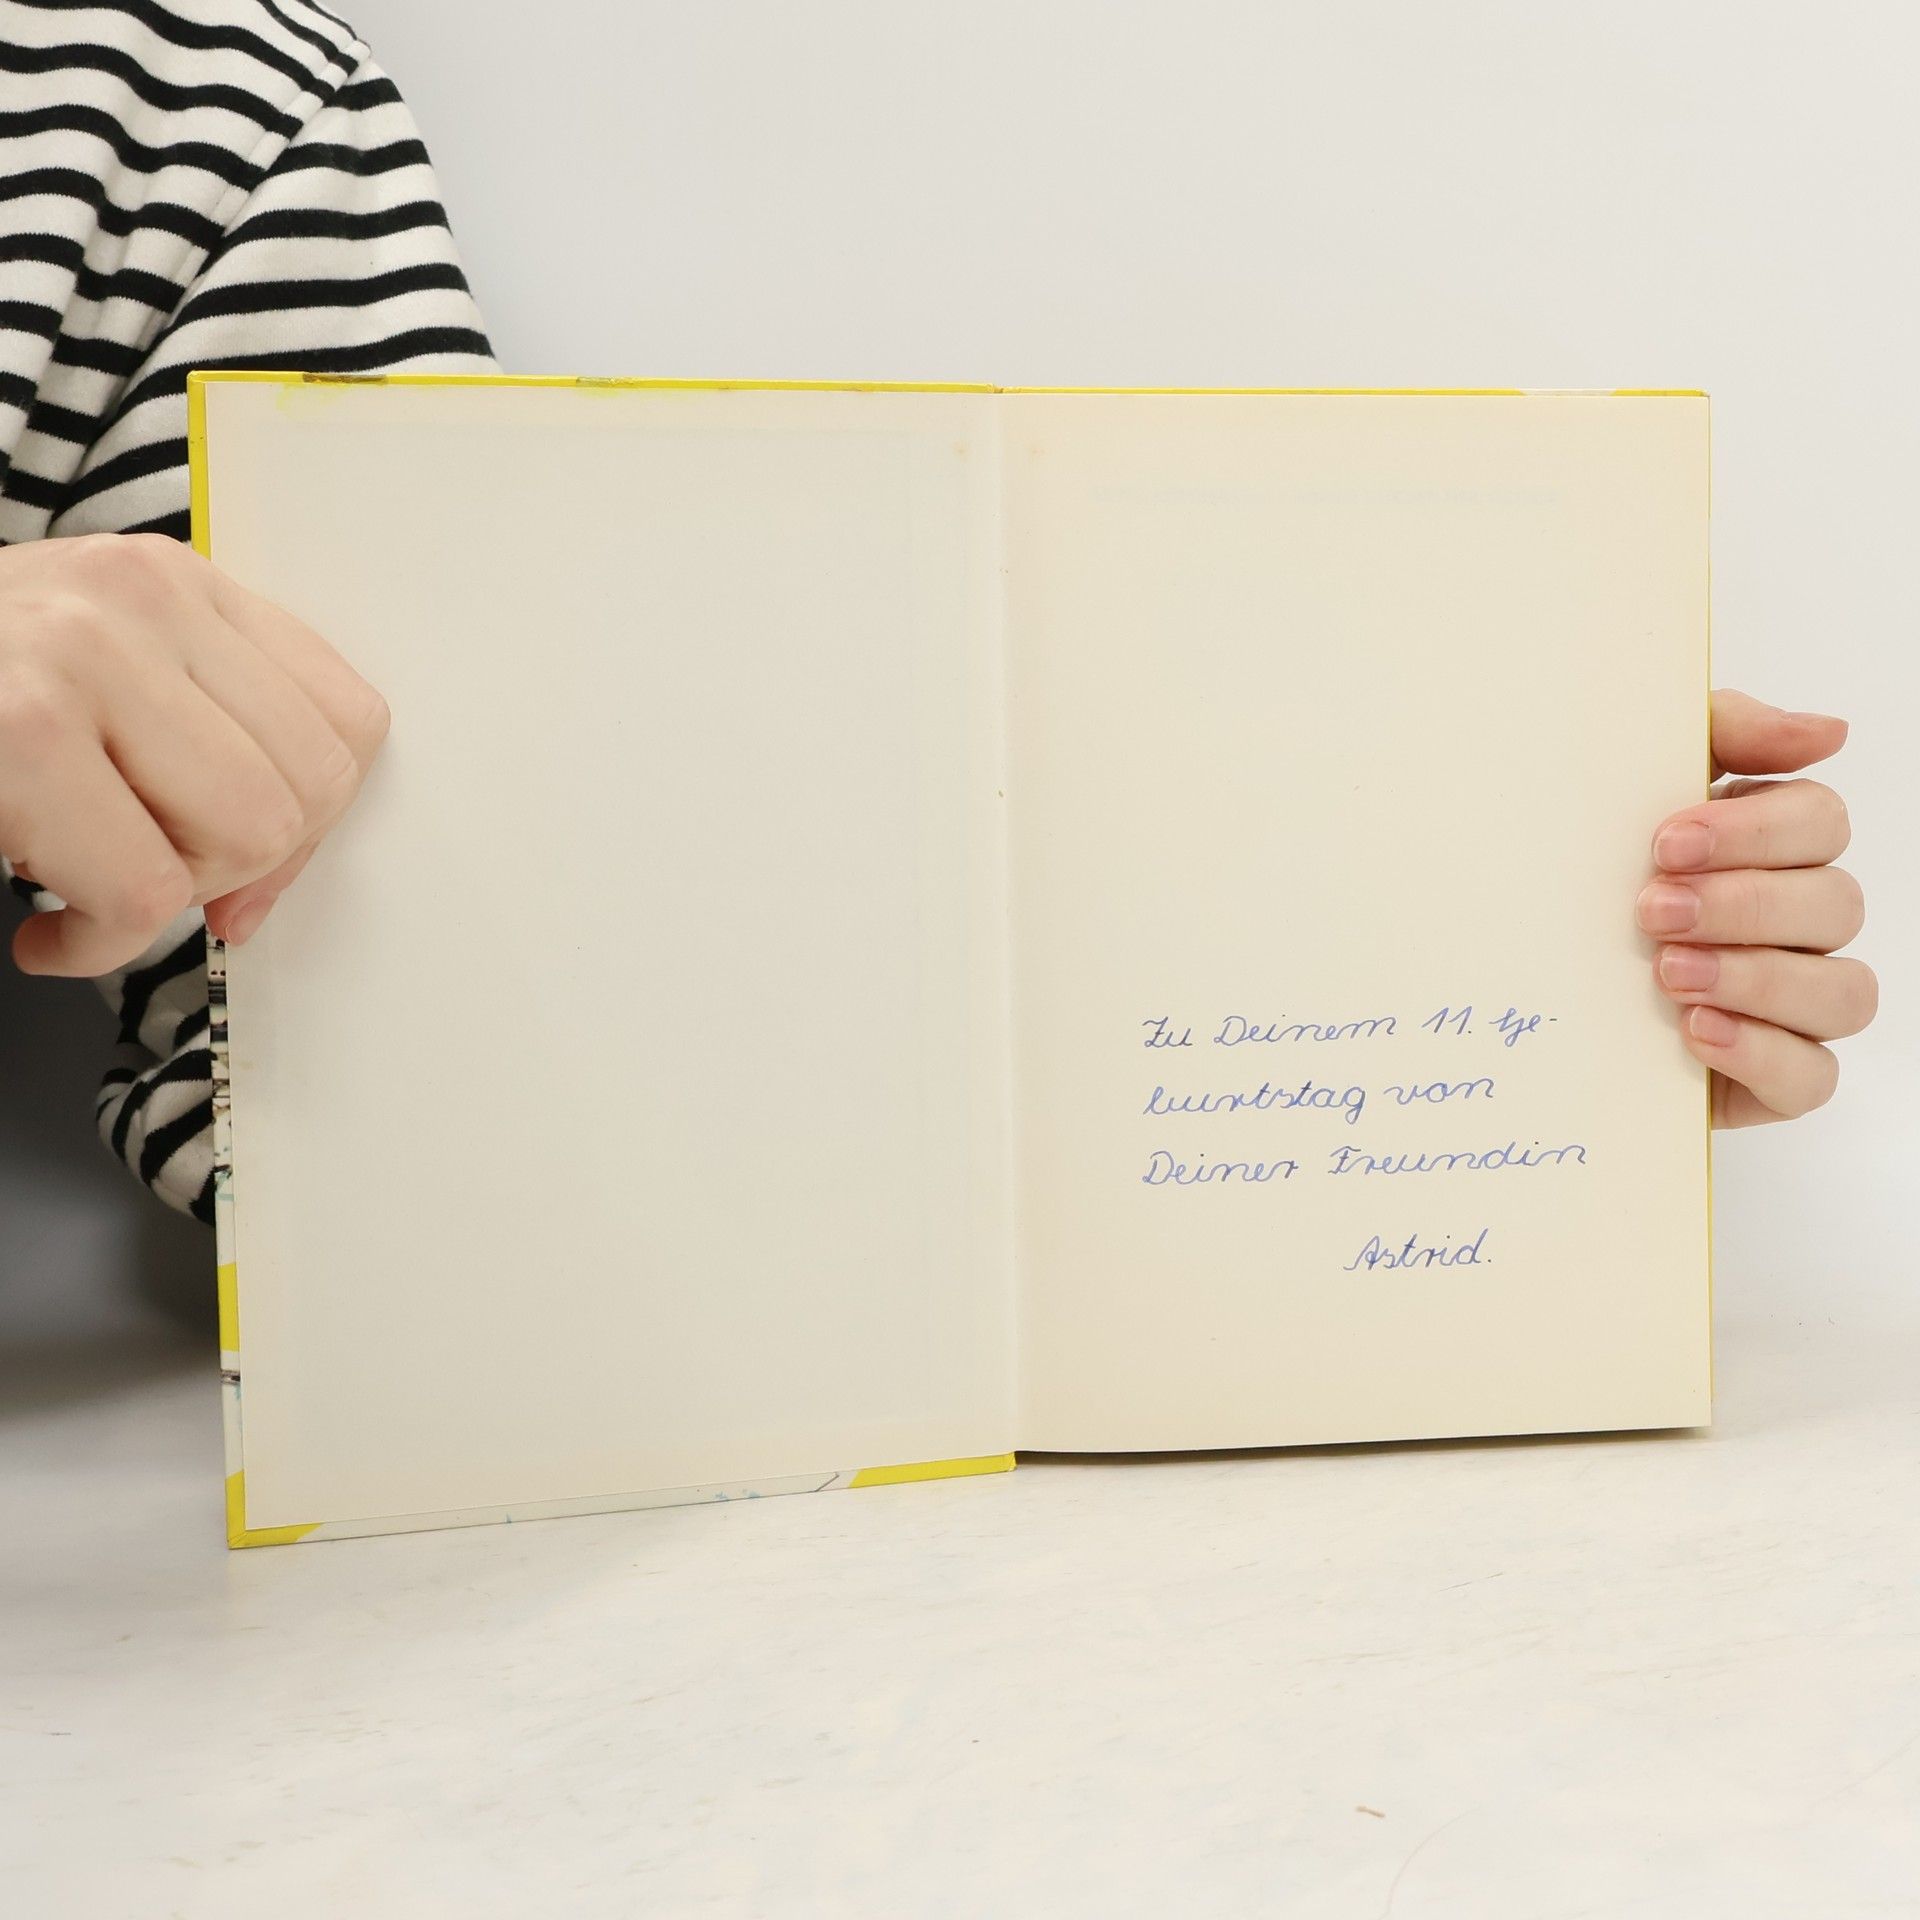 Zu Deinem 11. Ge-
burtstag von
Deiner Freundin
Astrid.